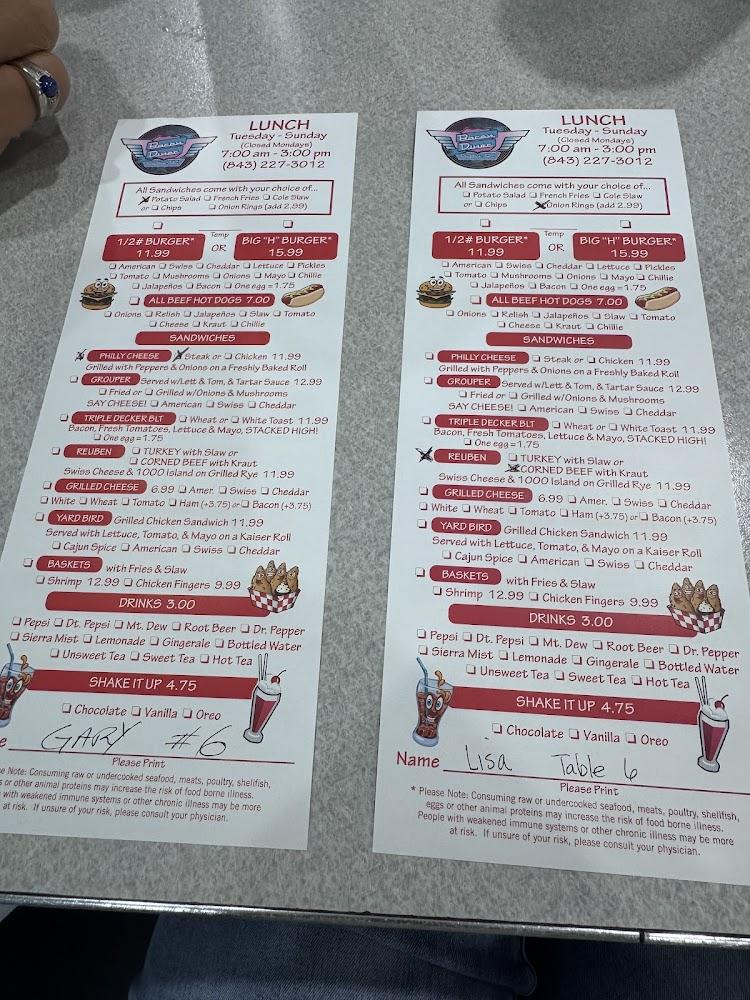 Bacon
Diner
LUNCH
Tuesday - Sunday
(Closed Mondays)
7:00 am - 3:00 pm
(843) 227-3012
All Sandwiches come with your choice of...
Potato Salad ☐ French Fries ☐ Cole Slaw
or ☐ Chips ☐ Onion Rings (add 2.99)
Temp
1/2# BURGER* OR BIG "H" BURGER*
11.99 15.99
☐ American ☐ Swiss ☐ Cheddar ☐ Lettuce ☐ Pickles
☐ Tomato ☐ Mushrooms ☐ Onions ☐ Mayo ☐ Chillie
☐ Jalapeños ☐ Bacon ☐ One egg = 1.75
☐ ALL BEEF HOT DOGS 7.00
☐ Onions ☐ Relish ☐ Jalapeños ☐ Slaw ☐ Tomato
☐ Cheese ☐ Kraut ☐ Chillie
SANDWICHES
PHILLY CHEESE Steak or ☐ Chicken 11.99
Grilled with Peppers & Onions on a Freshly Baked Roll
☐ GROUPER Served w/Lett & Tom, & Tartar Sauce 12.99
☐ Fried or ☐ Grilled w/Onions & Mushrooms
SAY CHEESE! ☐ American ☐ Swiss ☐ Cheddar
☐ TRIPLE DECKER BLT ☐ Wheat or ☐ White Toast 11.99
Bacon, Fresh Tomatoes, Lettuce & Mayo, STACKED HIGH!
☐ One egg = 1.75
☐ REUBEN ☐ TURKEY with Slaw or
☐ CORNED BEEF with Kraut
Swiss Cheese & 1000 Island on Grilled Rye 11.99
☐ GRILLED CHEESE 6.99 ☐ Amer. ☐ Swiss ☐ Cheddar
☐ White ☐ Wheat ☐ Tomato ☐ Ham (+3.75) or ☐ Bacon (+3.75)
☐ YARD BIRD Grilled Chicken Sandwich 11.99
Served with Lettuce, Tomato, & Mayo on a Kaiser Roll
☐ Cajun Spice ☐ American ☐ Swiss ☐ Cheddar
☐ BASKETS with Fries & Slaw
☐ Shrimp 12.99 ☐ Chicken Fingers 9.99
DRINKS 3.00
☐ Pepsi ☐ Dt. Pepsi ☐ Mt. Dew ☐ Root Beer ☐ Dr. Pepper
☐ Sierra Mist ☐ Lemonade ☐ Gingerale ☐ Bottled Water
☐ Unsweet Tea ☐ Sweet Tea ☐ Hot Tea
SHAKE IT UP 4.75
☐ Chocolate ☐ Vanilla ☐ Oreo
GARY #6
Please Print
Note: Consuming raw or undercooked seafood, meats, poultry, shellfish,
or other animal proteins may increase the risk of food borne illness.
with weakened immune systems or other chronic illness may be more
at risk. If unsure of your risk, please consult your physician.
Bacon
Diner
LUNCH
Tuesday - Sunday
(Closed Mondays)
7:00 am - 3:00 pm
(843) 227-3012
All Sandwiches come with your choice of...
☐ Potato Salad ☐ French Fries ☐ Cole Slaw
or ☐ Chips Onion Rings (add 2.99)
Temp
1/2# BURGER* OR BIG "H" BURGER*
11.99 15.99
☐ American ☐ Swiss ☐ Cheddar ☐ Lettuce ☐ Pickles
☐ Tomato ☐ Mushrooms ☐ Onions ☐ Mayo ☐ Chillie
☐ Jalapeños ☐ Bacon ☐ One egg = 1.75
☐ ALL BEEF HOT DOGS 7.00
☐ Onions ☐ Relish ☐ Jalapeños ☐ Slaw ☐ Tomato
☐ Cheese ☐ Kraut ☐ Chillie
SANDWICHES
☐ PHILLY CHEESE ☐ Steak or ☐ Chicken 11.99
Grilled with Peppers & Onions on a Freshly Baked Roll
☐ GROUPER Served w/Lett & Tom, & Tartar Sauce 12.99
☐ Fried or ☐ Grilled w/Onions & Mushrooms
SAY CHEESE! ☐ American ☐ Swiss ☐ Cheddar
☐ TRIPLE DECKER BLT ☐ Wheat or ☐ White Toast 11.99
Bacon, Fresh Tomatoes, Lettuce & Mayo, STACKED HIGH!
☐ One egg = 1.75
REUBEN ☐ TURKEY with Slaw or
CORNED BEEF with Kraut
Swiss Cheese & 1000 Island on Grilled Rye 11.99
☐ GRILLED CHEESE 6.99 ☐ Amer. ☐ Swiss ☐ Cheddar
☐ White ☐ Wheat ☐ Tomato ☐ Ham (+3.75) or ☐ Bacon (+3.75)
☐ YARD BIRD Grilled Chicken Sandwich 11.99
Served with Lettuce, Tomato, & Mayo on a Kaiser Roll
☐ Cajun Spice ☐ American ☐ Swiss ☐ Cheddar
☐ BASKETS with Fries & Slaw
☐ Shrimp 12.99 ☐ Chicken Fingers 9.99
DRINKS 3.00
☐ Pepsi ☐ Dt. Pepsi ☐ Mt. Dew ☐ Root Beer ☐ Dr. Pepper
☐ Sierra Mist ☐ Lemonade ☐ Gingerale ☐ Bottled Water
☐ Unsweet Tea ☐ Sweet Tea ☐ Hot Tea
SHAKE IT UP 4.75
☐ Chocolate ☐ Vanilla ☐ Oreo
Name Lisa Table 6
Please Print
* Please Note: Consuming raw or undercooked seafood, meats, poultry, shellfish,
eggs or other animal proteins may increase the risk of food borne illness.
People with weakened immune systems or other chronic illness may be more
at risk. If unsure of your risk, please consult your physician.